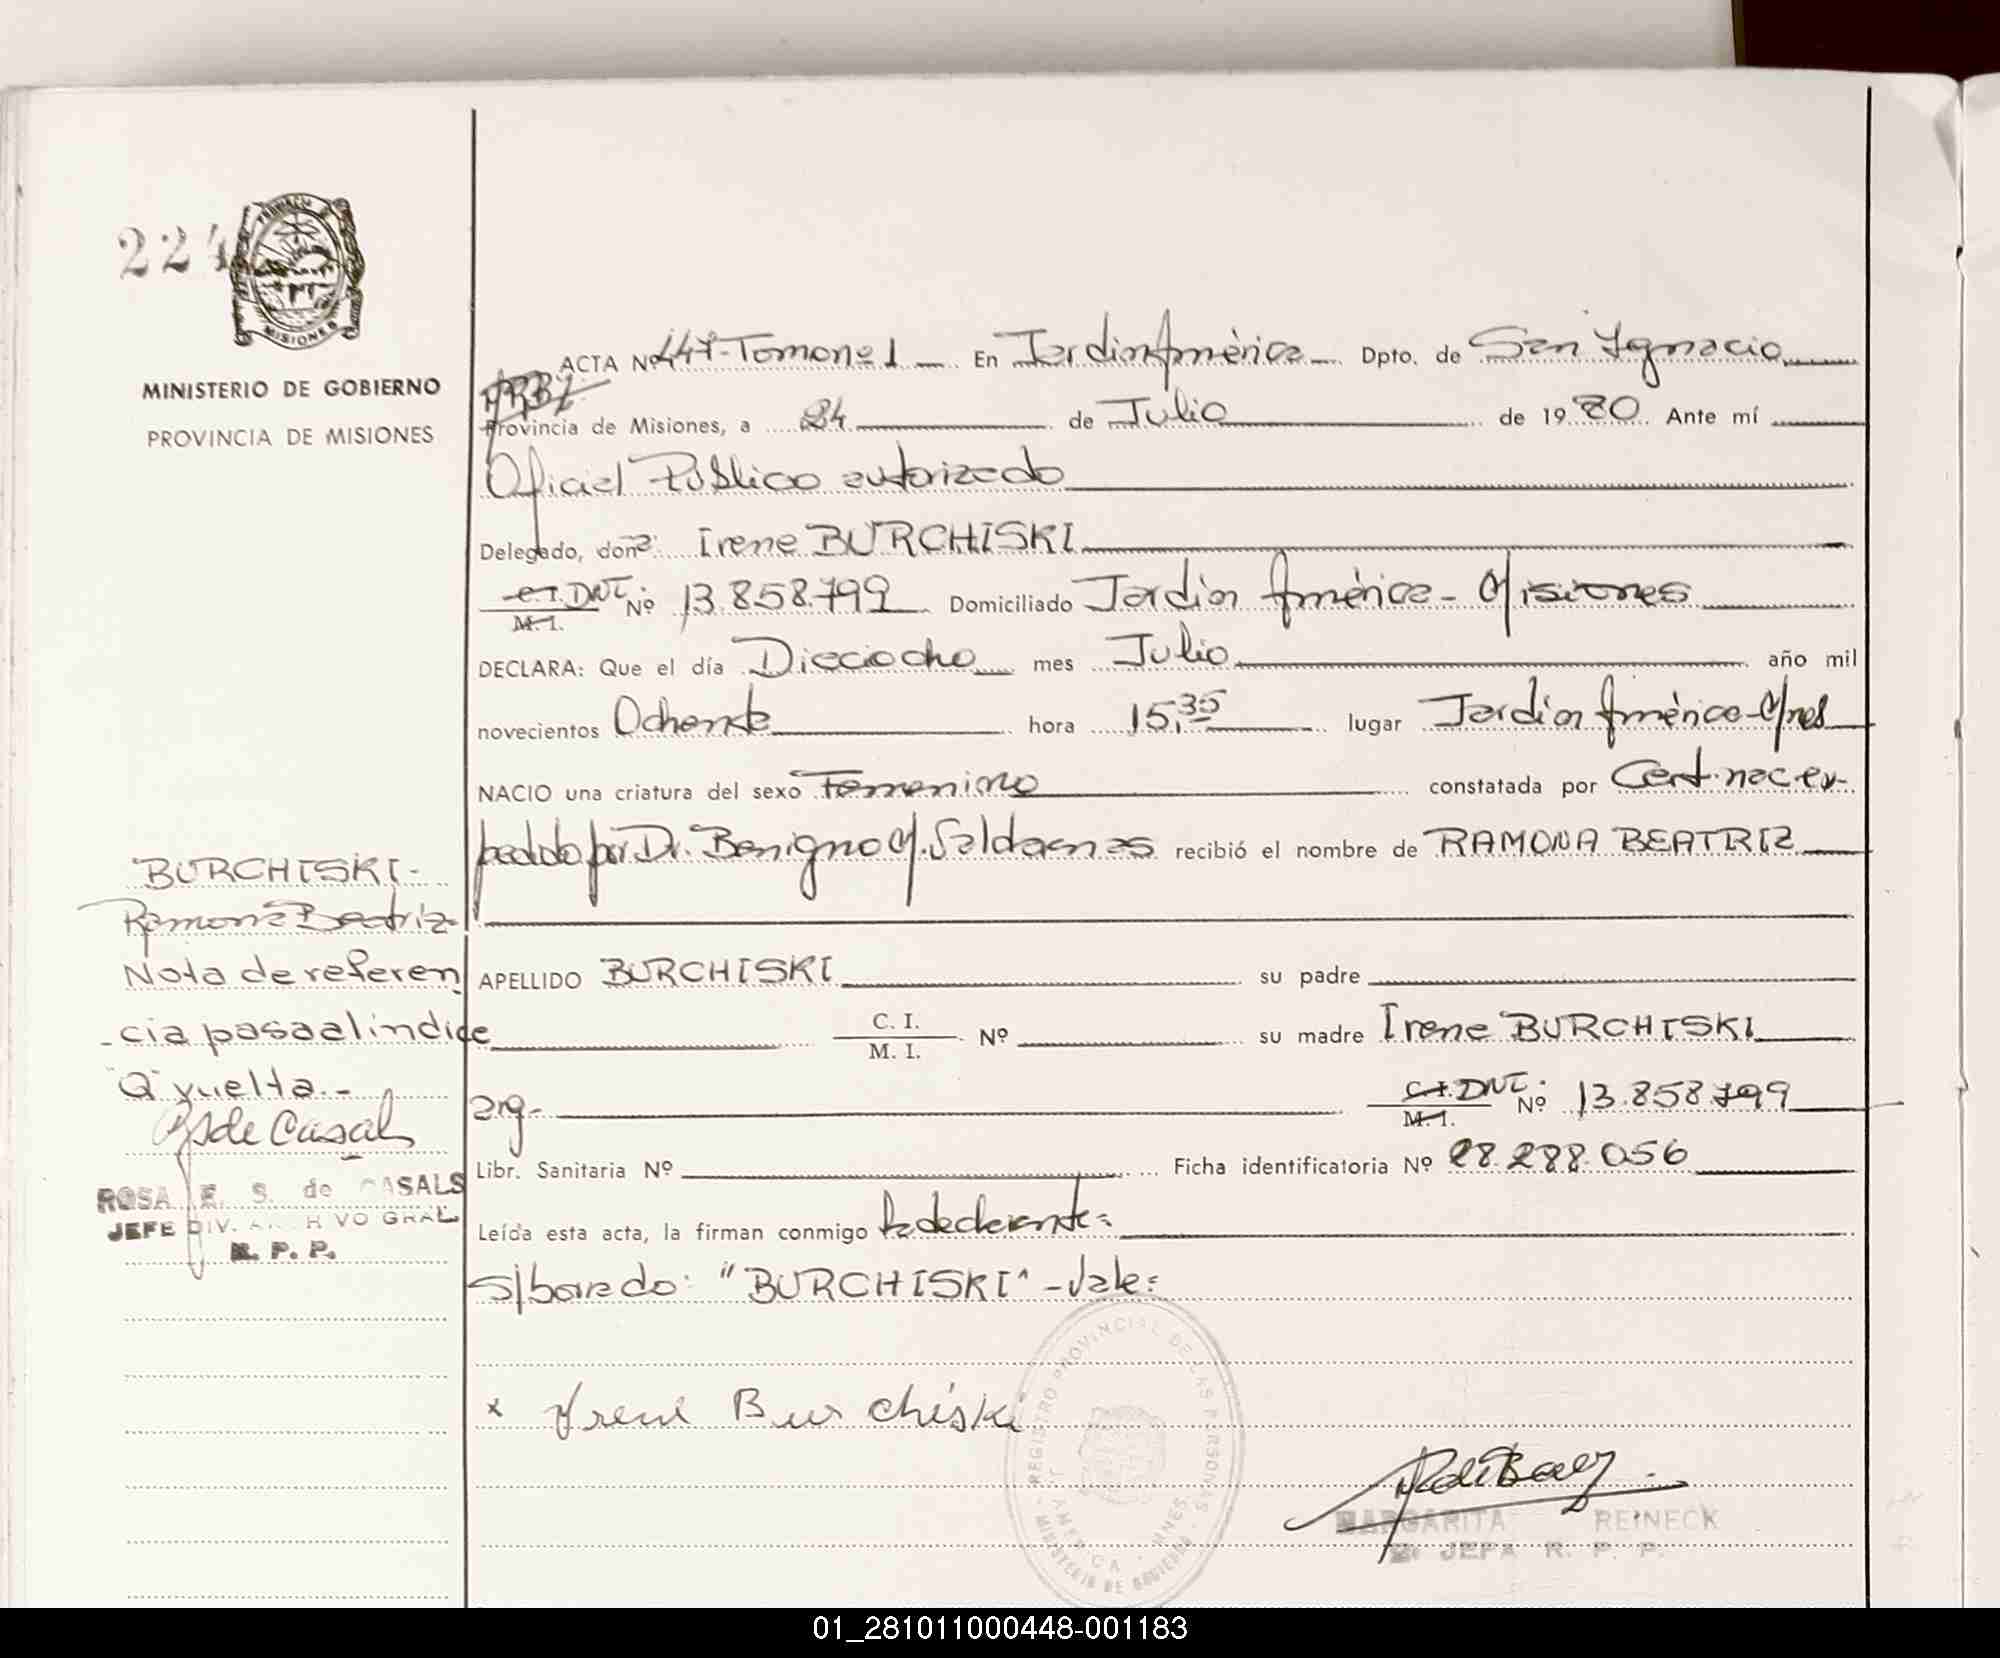 224
MISIONES
MINISTERIO DE GOBIERNO
PROVINCIA DE MISIONES
ACTA Nº 447-Tomo nº 1 En Jardin América Dpto. de San Ignacio
Provincia de Misiones, a 24 de Julio de 1980 Ante mí
Oficial Público autorizado
Delegado, doña: Irene BURCHISKI
C.I. DNI: Nº 13.858.799 Domiciliado Jardin América - Misiones
M. I.
DECLARA: Que el día Dieciocho mes Julio año mil
novecientos Ochenta hora 15,35 lugar Jardin América - Mnes
NACIO una criatura del sexo Femenino constatada por Cert. nac. ex-
pedido por Dr. Benigno M. Saldaenas recibió el nombre de RAMONA BEATRIZ
BURCHISKI-
Ramona Beatriz
Nota de referen
-cia pasa al indice
"Q" vuelta.-
Rs de Casals
ROSA E. S. de CASALS
JEFE DIV. ARCHIVO GRAL
R. P. P.
APELLIDO BURCHISKI su padre
C. I. Nº su madre Irene BURCHISKI
M. I.
arg- C.I. DNI: Nº 13.858.799
M. I.
Libr. Sanitaria Nº Ficha identificatoria Nº 28.288.056
Leída esta acta, la firman conmigo la declarante=
S/borrado: "BURCHISKI" - Vale=
x Irene Burchiski
REGISTRO PROVINCIAL DE LAS PERSONAS
MINISTERIO DE GOBIERNO
AMERICA - MNES
MARGARITA REINECK
JEFA R. P. P.
01_281011000448-001183